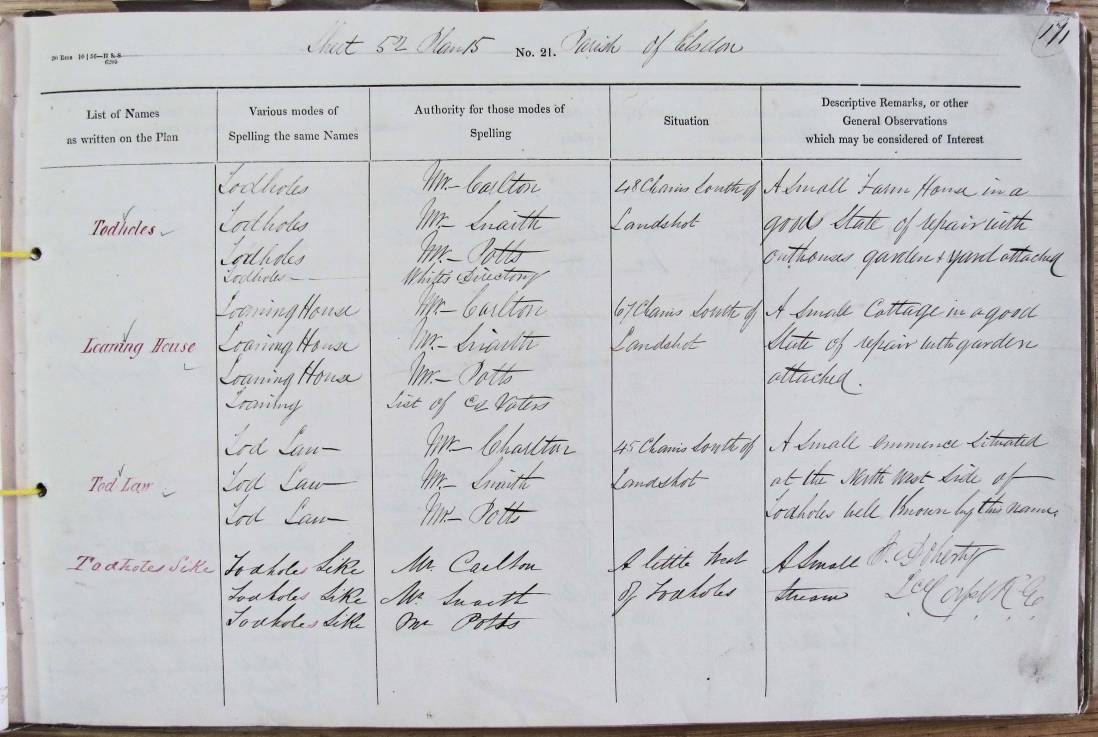 171
Sheet 52 Plan 15 No. 21. Parish of Elsdon
List of Names
as written on the Plan
Various modes of
Spelling the same Names
Authority for those modes of
Spelling
Situation
Descriptive Remarks, or other
General Observations
which may be considered of Interest
Todholes
Todholes
Todholes
Todholes
Todholes
Mr. Carlton
Mr. Snaith
Mr. Potts
Whites Directory
48 Chains South of
Landshot
A Small Farm House in a
good State of repair with
outhouses garden & yard attached
Loaning House
Loaning House
Loaning House
Loaning House
Loaning
Mr. Carlton
Mr. Snaith
Mr. Potts
List of Co. Voters
67 Chains South of
Landshot
A Small Cottage in a good
State of repair with garden
attached.
Tod Law
Tod Law
Tod Law
Tod Law
Mr. Charlton
Mr. Snaith
Mr. Potts
45 Chains South of
Landshot
A Small eminence Situated
at the North West Side of
Todholes well Known by this name.
Todholes Sike
Todholes Sike
Todholes Sike
Todholes Sike
Mr. Carlton
Mr. Snaith
Mr. Potts
A little West
of Todholes
A Small
Stream
Doherty
Corpl R.E.